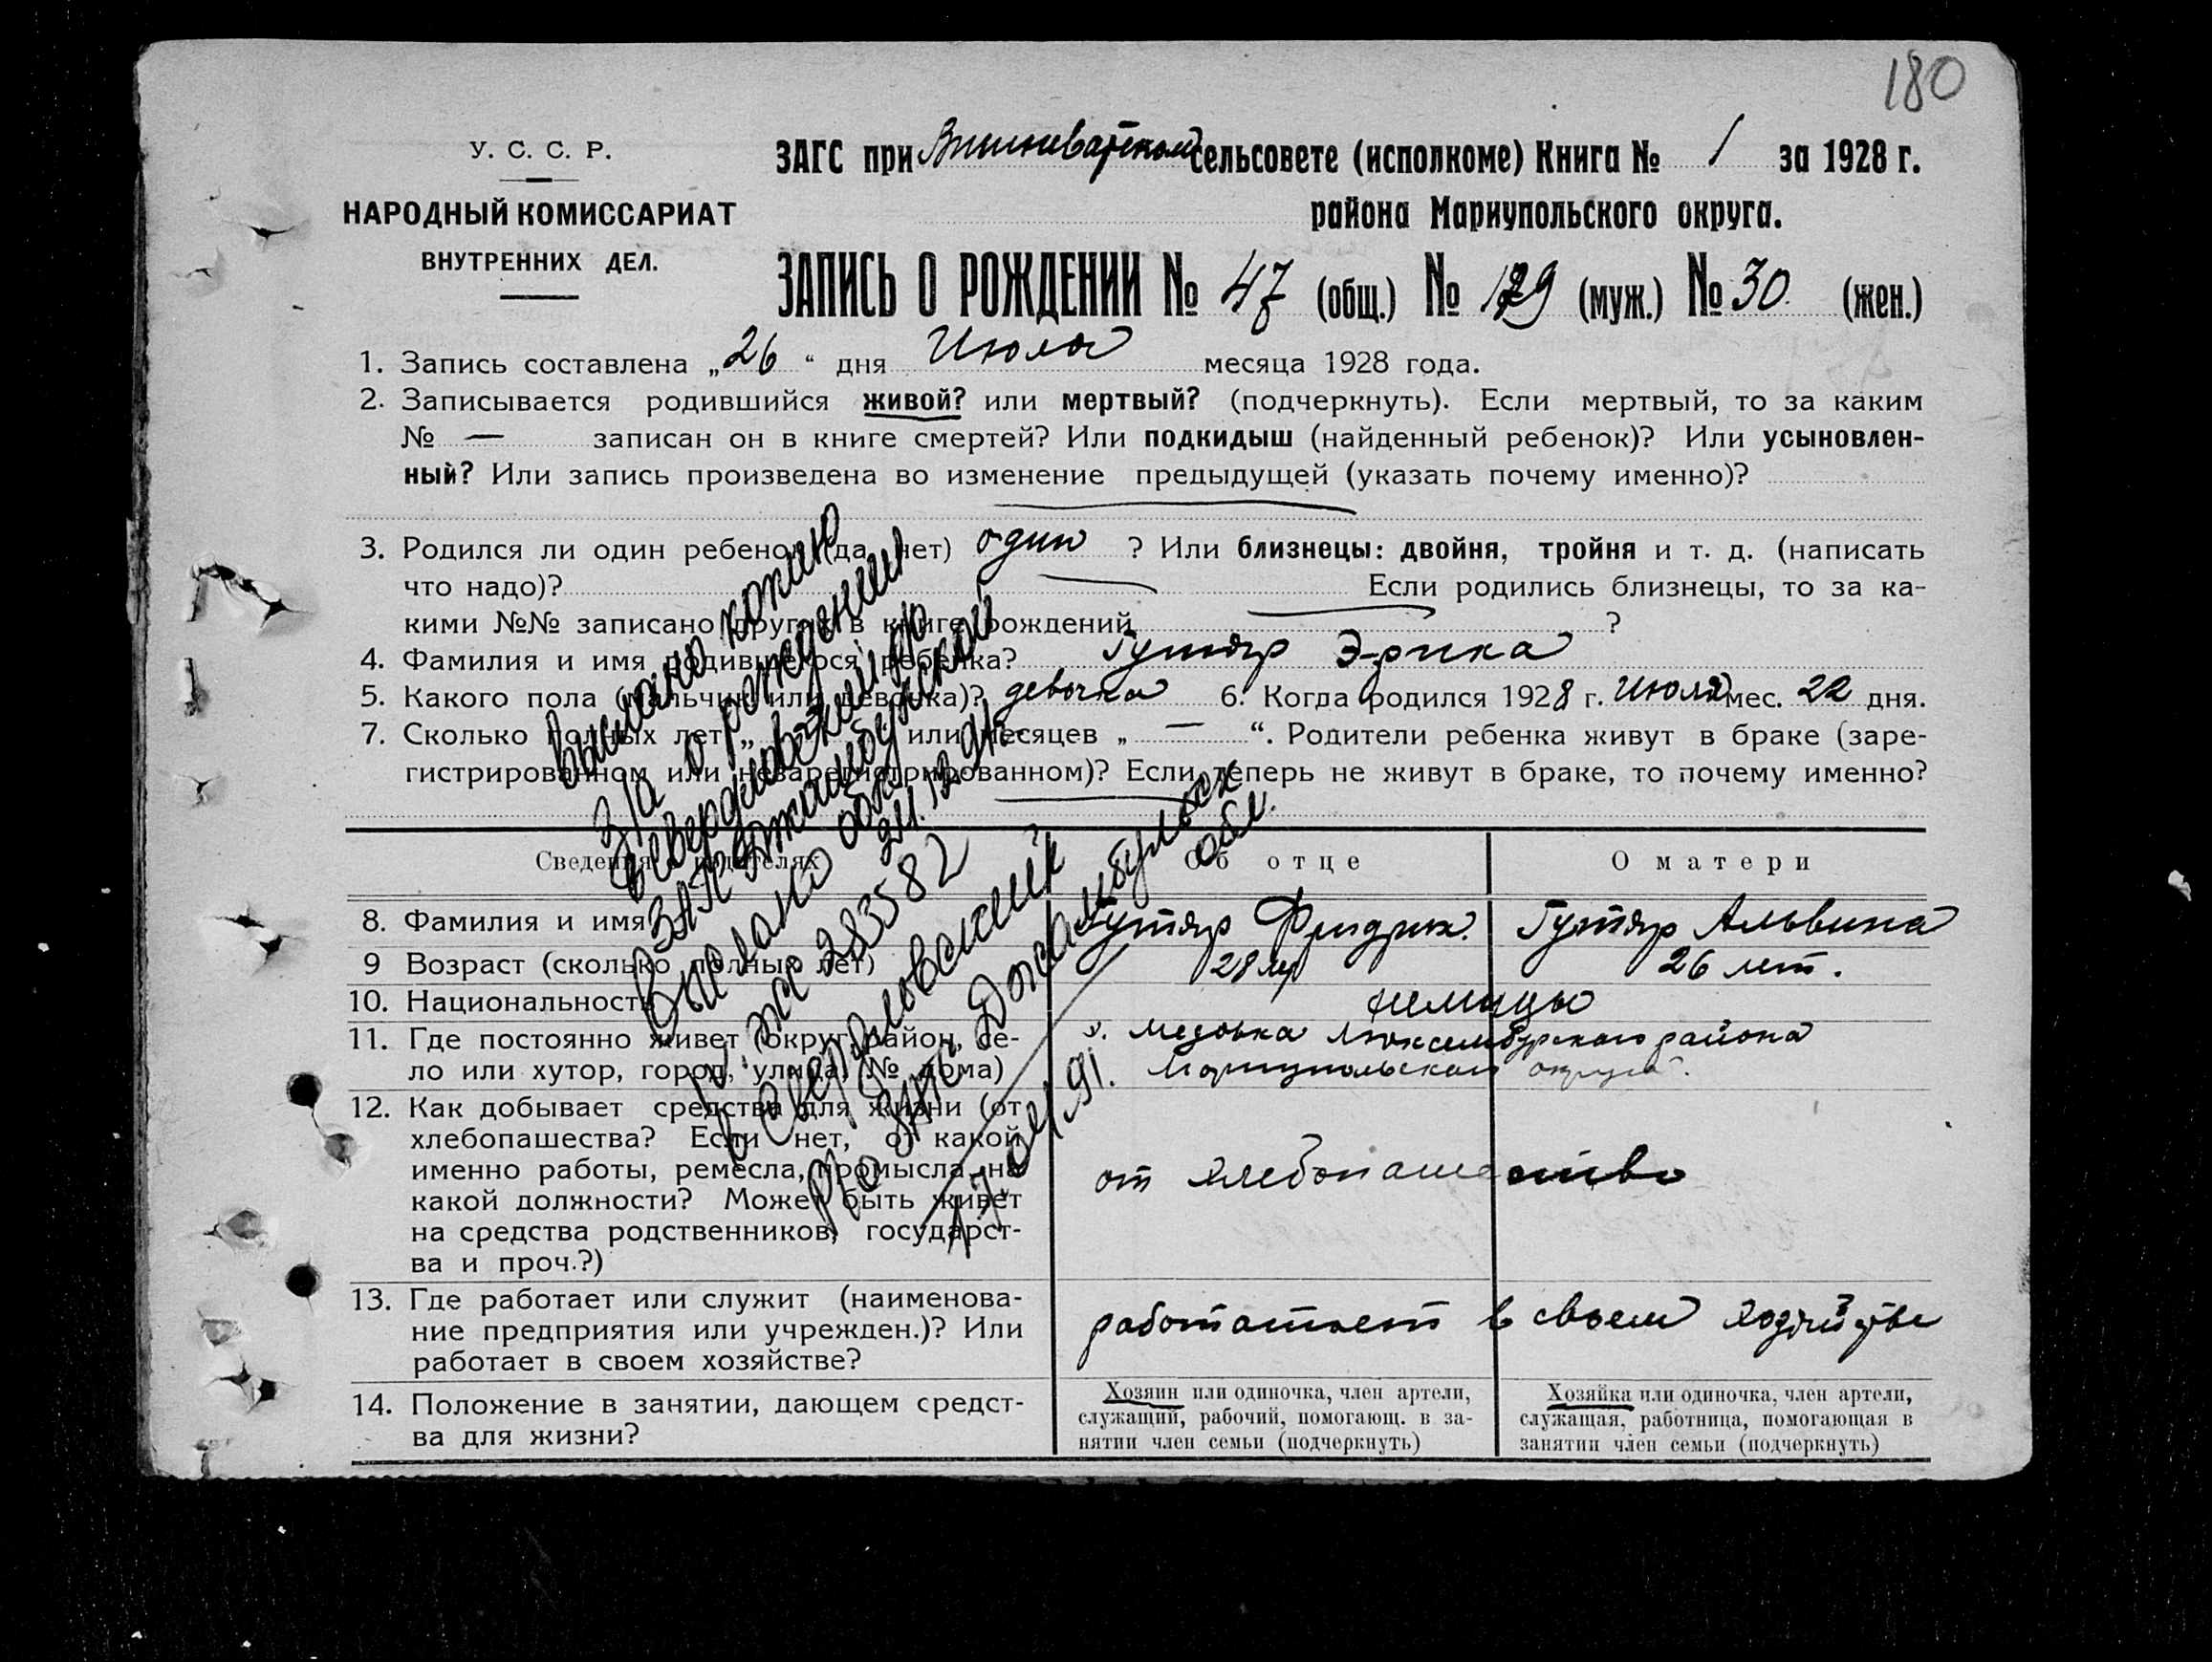 180
У. С. С. Р.
НАРОДНЫЙ КОМИССАРИАТ
ВНУТРЕННИХ ДЕЛ.
ЗАГС при сельсовете (исполкоме) Книга № 1 за 1928 г.
района Мариупольского округа.
ЗАПИСЬ О РОЖДЕНИИ № 47 (общ.) № (муж.) № 30 (жен.)
1. Запись составлена „26“ дня Июля месяца 1928 года.
2. Записывается родившийся живой? или мертвый? (подчеркнуть). Если мертвый, то за каким
№ — записан он в книге смертей? Или подкидыш (найденный ребенок)? Или усыновлен-
ный? Или запись произведена во изменение предыдущей (указать почему именно)?
3. Родился ли один ребенок (да, нет) один ? Или близнецы: двойня, тройня и т. д. (написать
что надо)? Если родились близнецы, то за ка-
кими №№ записано другое в книге рождений ?
4. Фамилия и имя родившегося ребенка? Гутяр Эрика
5. Какого пола (мальчик или девочка)? девочка 6. Когда родился 1928 г. Июля мес. 22 дня.
7. Сколько полных лет „ или месяцев „ — “. Родители ребенка живут в браке (заре-
гистрированном или незарегистрированном)? Если теперь не живут в браке, то почему именно?
выслано копию
з/а о рождении
в Свердловский р-о
ЗАГС Джамбулской
обл.
Выслано 24.12.91г.
IV-жс 283582
в Свердловский
р/о ЗАГС Джамбульск
обл.
17.04.91.
Сведения о родителях
Об отце
О матери
8. Фамилия и имя
Гутяр Фридрих.
Гутяр Альвина
9 Возраст (сколько полных лет)
28 лет
26 лет.
10. Национальность
немцы
11. Где постоянно живет (округ, район, се-
ло или хутор, город, улица, № дома)
Люксембургского района
Мариупольского округа.
12. Как добывает средства для жизни (от
хлебопашества? Если нет, от какой
именно работы, ремесла, промысла, на
какой должности? Может быть живет
на средства родственников, государст-
ва и проч.?)
от хлебопашество
13. Где работает или служит (наименова-
ние предприятия или учрежден.)? Или
работает в своем хозяйстве?
работатает в своем хозяйстве
14. Положение в занятии, дающем средст-
ва для жизни?
Хозяин или одиночка, член артели,
служащий, рабочий, помогающ. в за-
нятии член семьи (подчеркнуть)
Хозяйка или одиночка, член артели,
служащая, работница, помогающая в
занятии член семьи (подчеркнуть)